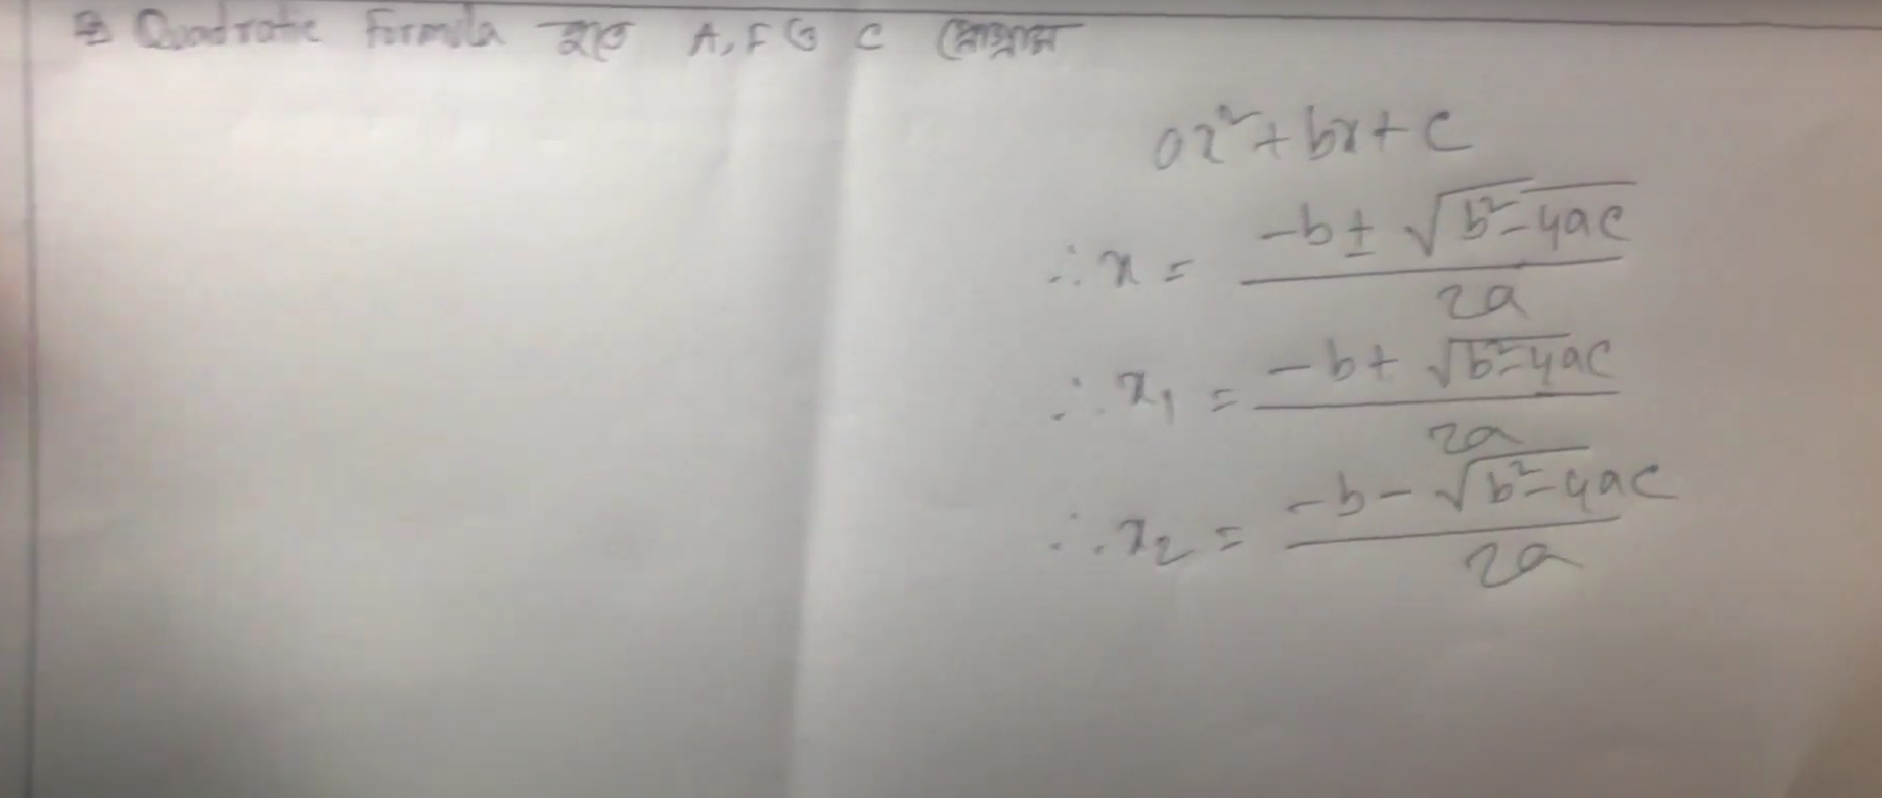 Quadratic Formula হতে A, F ও C প্রোগ্রাম
ax² + bx + c
∴ x = (-b ± √(b² - 4ac)) / 2a
∴ x₁ = (-b + √(b² - 4ac)) / 2a
∴ x₂ = (-b - √(b² - 4ac)) / 2a